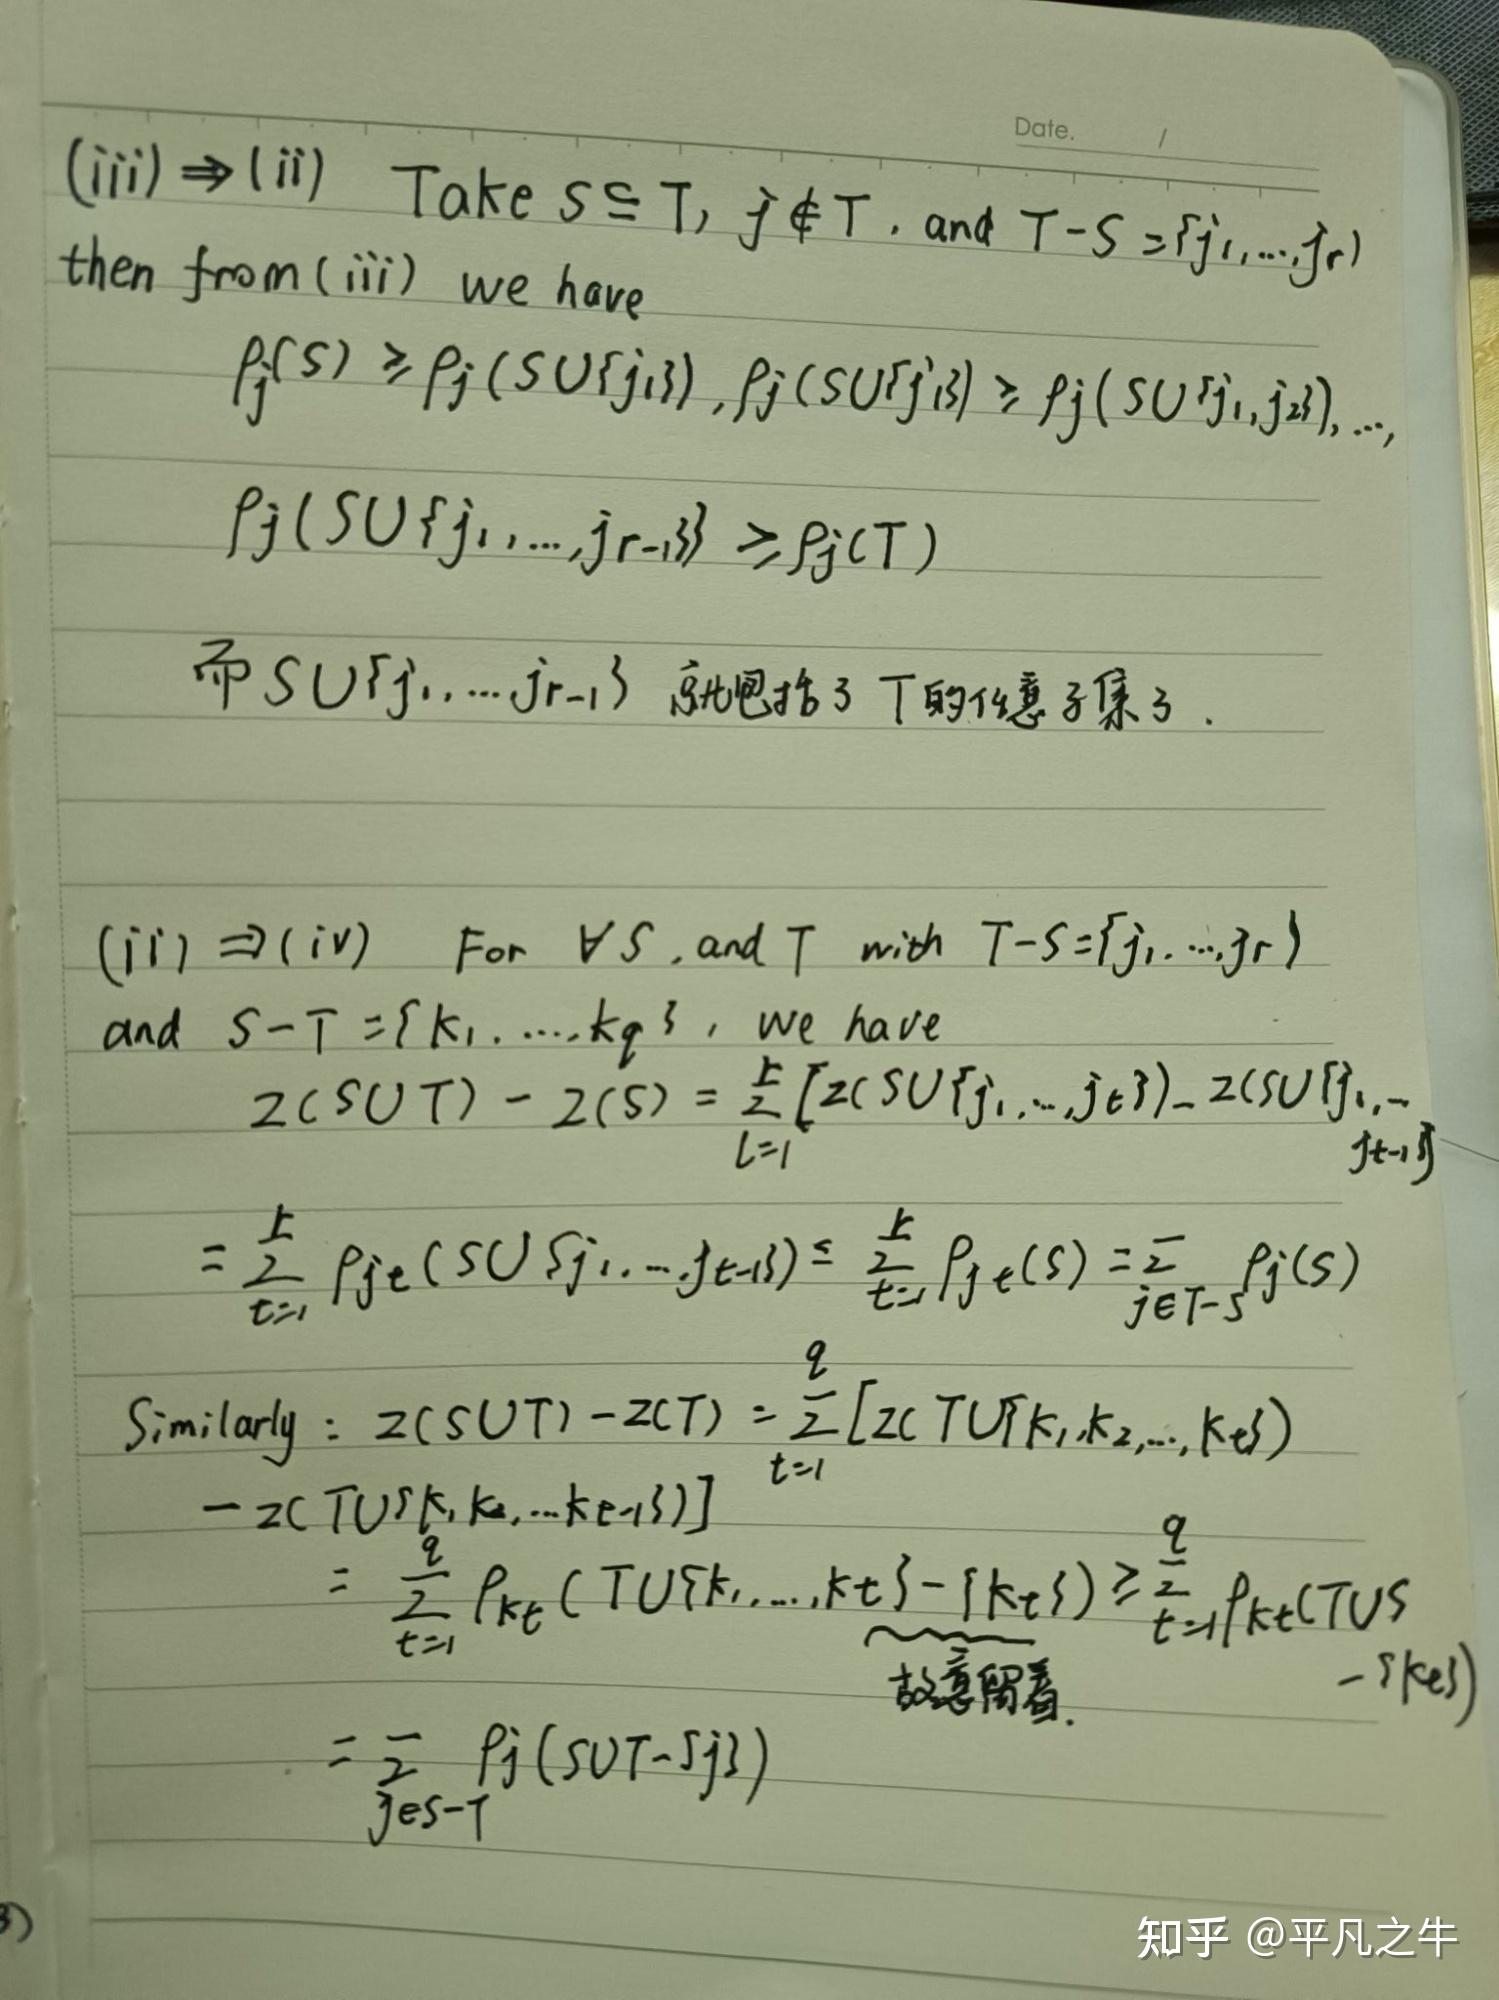 Date. /
(iii) ⇒ (ii) Take S ⊆ T, j ∉ T, and T-S = {j₁, ..., jᵣ)
then from (iii) we have
ρⱼ(S) ≥ ρⱼ(S∪{j₁}), ρⱼ(S∪{j₁}) ≥ ρⱼ(S∪{j₁, j₂}), ...,
ρⱼ(S∪{j₁, ..., jᵣ₋₁}} ≥ ρⱼ(T)
而 S∪{j₁, ... jᵣ₋₁} 就包括了 T的任意子集了.
(ii) ⇒ (iv) For ∀S, and T with T-S={j₁, ..., jᵣ)
and S-T = {k₁, ..., k_q}, we have
z(S∪T) - z(S) = Σ_{t=1}^{r} [z(S∪{j₁, ..., j_t}) - z(S∪{j₁, ...
j_{t-1}}]
= Σ_{t=1}^{r} ρ_{j_t}(S∪{j₁, ... j_{t-1}}) ≤ Σ_{t=1}^{r} ρ_{j_t}(S) = Σ_{j∈T-S} ρⱼ(S)
Similarly: z(S∪T) - z(T) = Σ_{t=1}^{q} [z(T∪{k₁, k₂, ..., k_t})
- z(T∪{k₁, k₂, ... k_{t-1}})]
= Σ_{t=1}^{q} ρ_{k_t}(T∪{k₁, ..., k_t} - {k_t}) ≥ Σ_{t=1}^{q} ρ_{k_t}(T∪S
- {k_t})
故意留着.
= Σ_{j∈S-T} ρⱼ(S∪T-{j})
3)
知乎 @平凡之牛